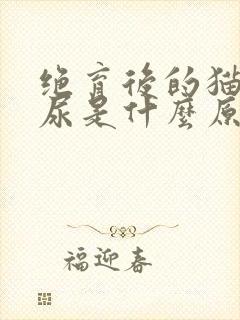 绝育後的猫
尿是什麼原
福迎春